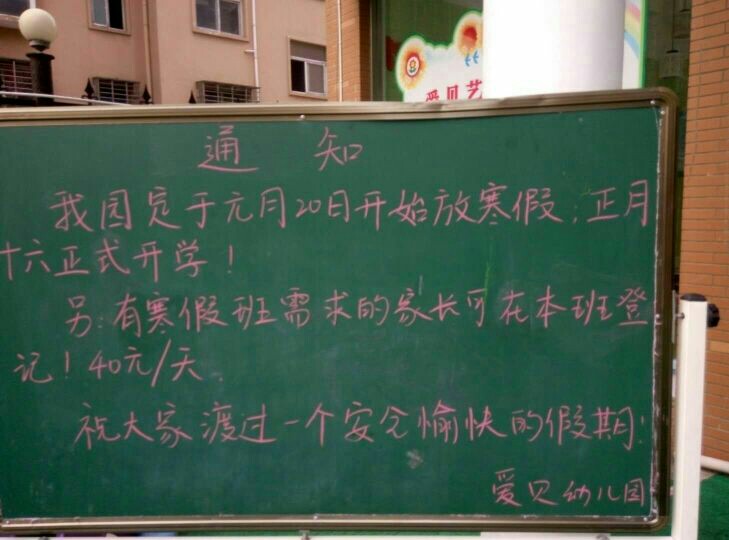 爱贝艺
通 知
我园定于元月20日开始放寒假;正月
十六正式开学!
另:有寒假班需求的家长可在本班登
记!40元/天.
祝大家渡过一个安全愉快的假期!
爱贝幼儿园